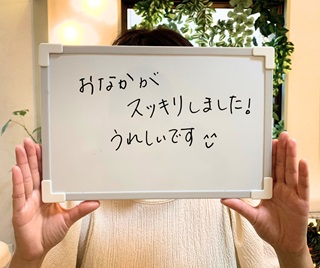 おなかが
スッキリしました!
うれしいです